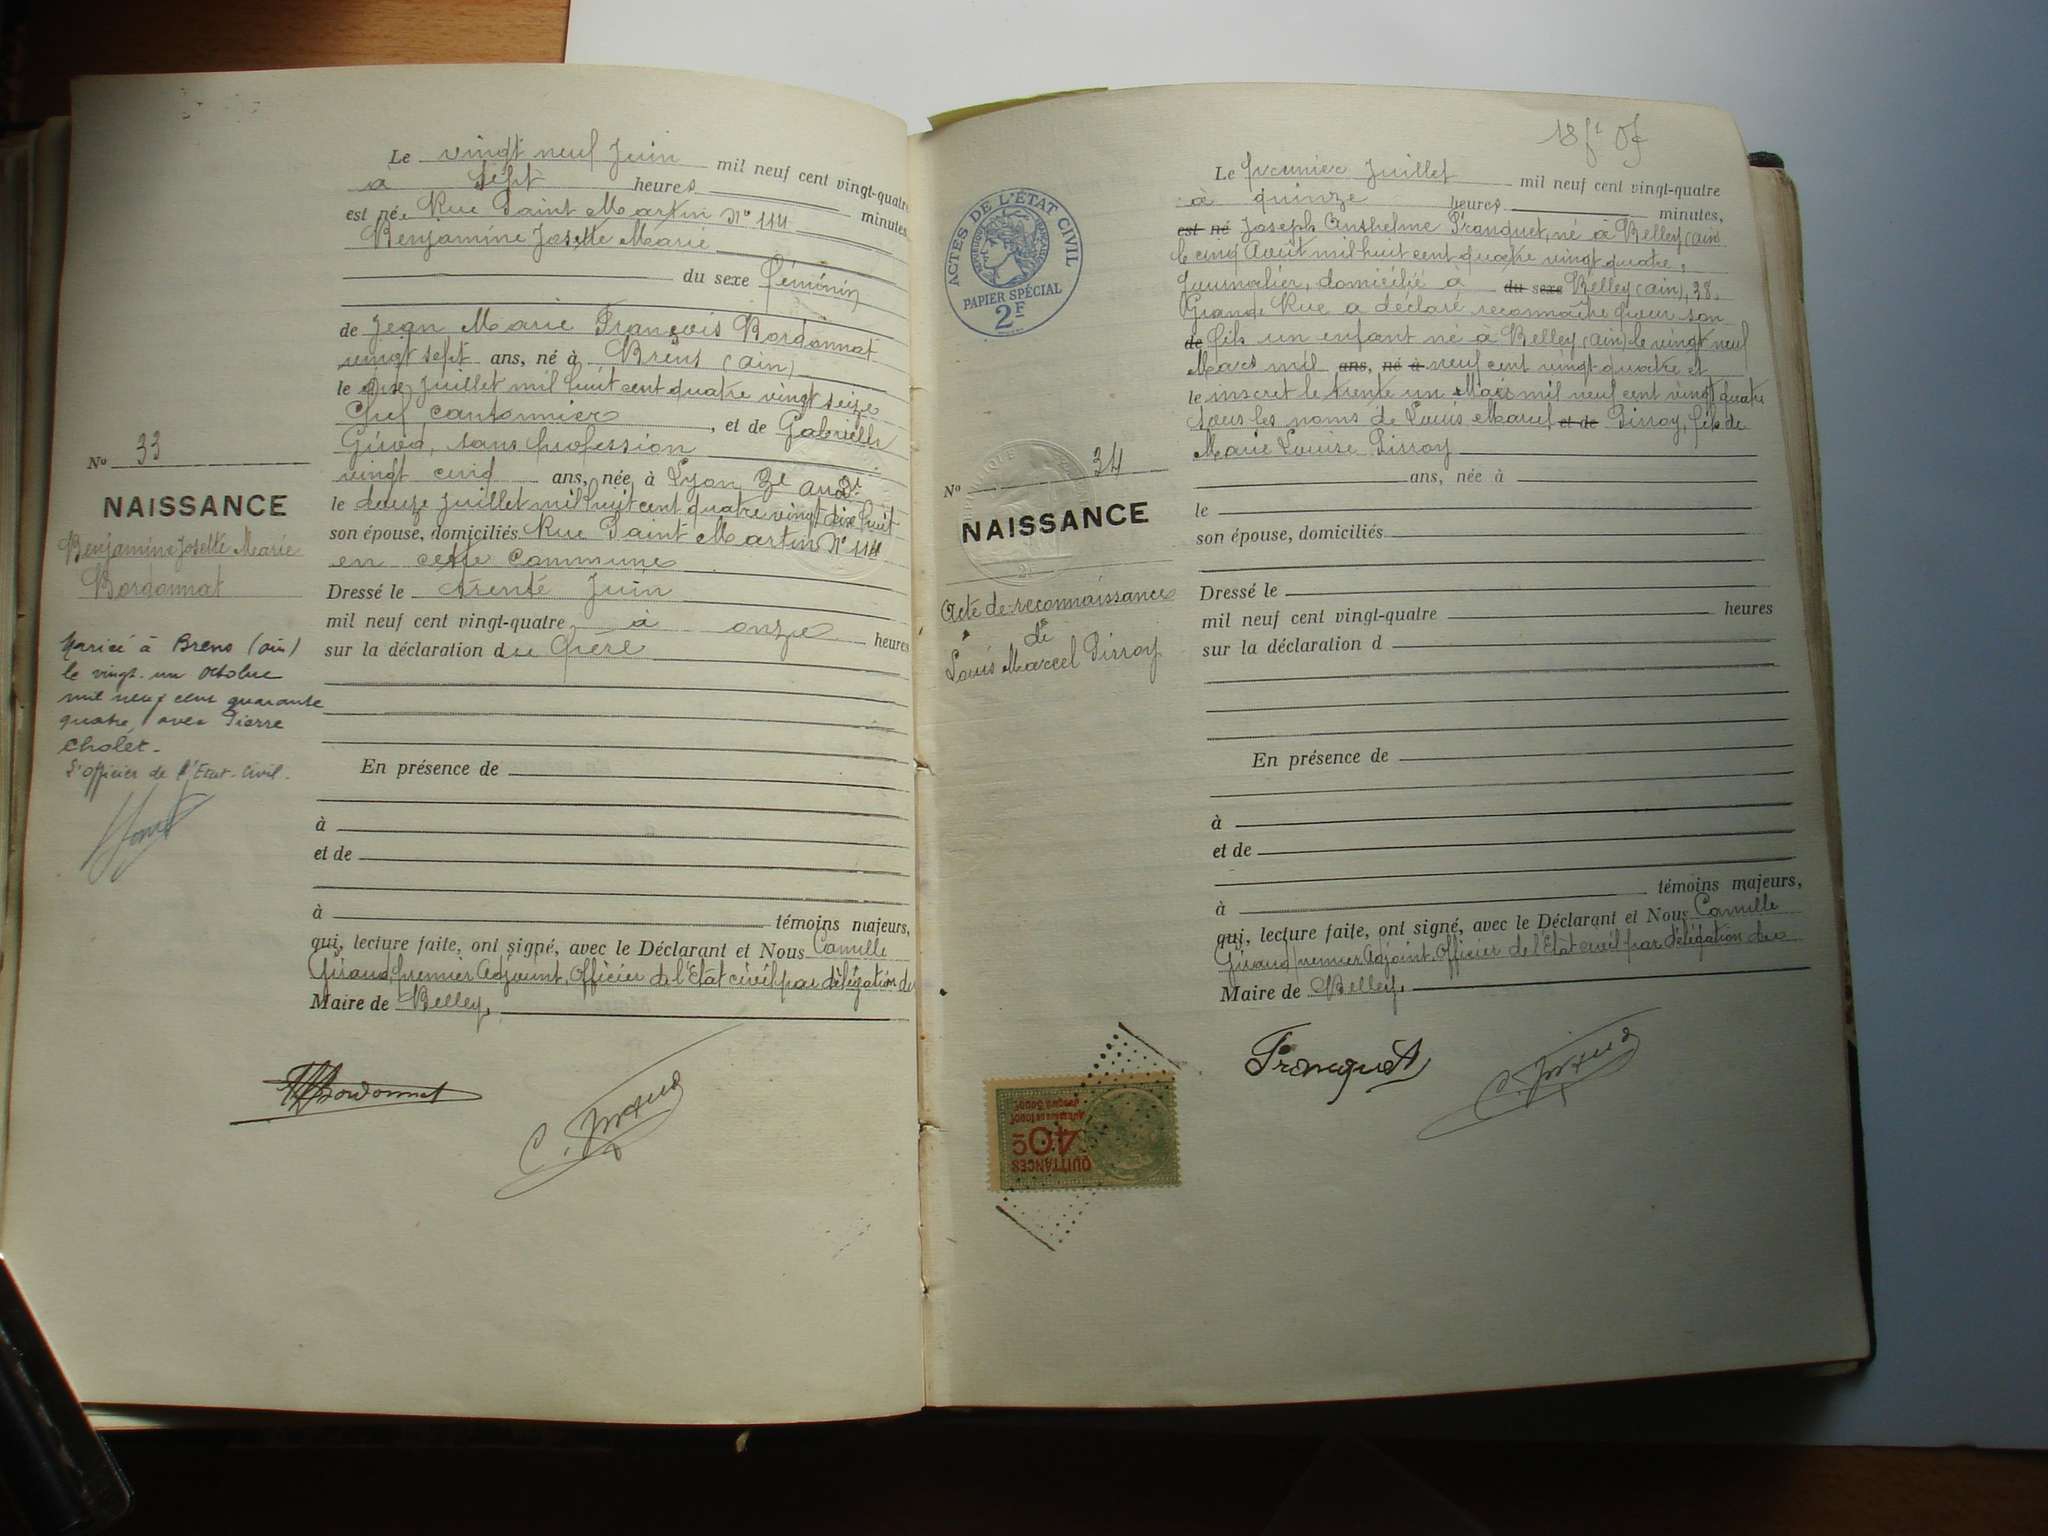 Le vingt neuf Juin mil neuf cent vingt-quatre
à sept heures minutes
est né, Rue Saint Martin N° 114
Benjamine Josette Marie
du sexe féminin
de Jean Marie François Bordonnat
vingt sept ans, né à Brens (ain)
le Juillet mil huit cent quatre vingt seize
Chef cantonnier, et de Gabrielle
Girod, sans profession
vingt cinq ans, née à Lyon 3e
le douze Juillet mil huit cent quatre vingt dix huit
son épouse, domiciliés Rue Saint Martin N° 114
en cette commune
Dressé le trente Juin
mil neuf cent vingt-quatre à onze heures
sur la déclaration du Père
En présence de
à
et de
à témoins majeurs,
qui, lecture faite, ont signé, avec le Déclarant et Nous Camille
Giraud, premier Adjoint, Officier de l'Etat civil par délégation du
Maire de Belley,
Bordonnat
C. Giraud
N° 33
NAISSANCE
Benjamine Josette Marie
Bordonnat
Mariée à Brens (ain)
le vingt-un Octobre
mil neuf cent quarante
quatre, avec Pierre
Cholet.
L'officier de l'Etat-Civil.
ACTES DE L'ÉTAT CIVIL
RÉPUBLIQUE FRANÇAISE
PAPIER SPÉCIAL
2F
N° 34
NAISSANCE
Acte de reconnaissance
de
Louis Marcel Pirroy
Le premier Juillet mil neuf cent vingt-quatre
à quinze heures minutes,
est né Joseph Anthelme Franquet, né à Belley (ain)
le cinq Août mil huit cent quatre vingt quatre,
Journalier, domicilié à du sexe Belley (ain), 38,
Grande Rue a déclaré reconnaître pour son
de fils un enfant né à Belley (ain) le vingt neuf
Mars mil ans, né à neuf cent vingt quatre et
le inscrit le trente un Mars mil neuf cent vingt quatre
sous les noms de Louis Marcel et de Pirroy, fils de
Marie Louise Pirroy
ans, née à
le
son épouse, domiciliés
Dressé le
mil neuf cent vingt-quatre heures
sur la déclaration d
En présence de
à
et de
à témoins majeurs,
qui, lecture faite, ont signé, avec le Déclarant et Nous Camille
Giraud premier Adjoint, Officier de l'Etat civil par délégation du
Maire de Belley,
Franquet
C. Giraud
QUITTANCES
40c